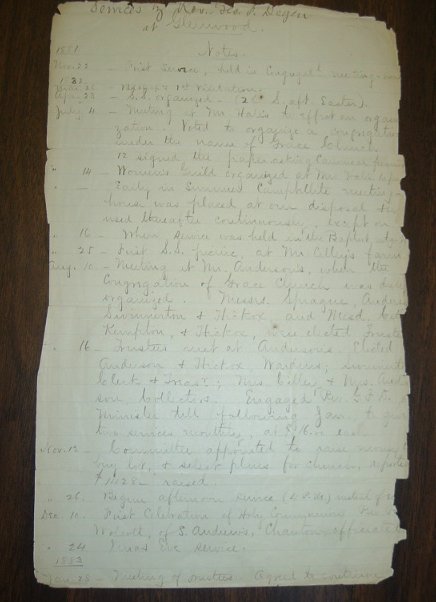 Services of Rev. Geo. F. Degen
at Glenwood.
Notes.
1881
Nov. 22 - First service, held in Congregat'l meeting
1882
1st visitation.
Apr. 23 - S.S. organized. (2d S. aft. Easter).
July 4 - Meeting at Mr. Hall's to effect an organi-
zation. Voted to organize a congregation
under the name of Grace Church.
12 signed the paper asking Canonical
" 14 - Women's Guild organized at Mr. Hall's
- Early in Summer Campbellite meeting-
house was placed at our disposal &
used thereafter continuously, except on
" 16 - When service was held in the Baptist
" 25 - First S.S. picnic, at Mr. Cilley's farm.
Aug. 10 - Meeting at Mr. Anderson's, when the
Congregation of Grace Church was duly
organized. Messrs. Sprague, Anderson
Swinnerton & Hickox and Mesd.
Kempton, & Hickox, were elected Trustees
" 16 - Trustees met at Anderson's. Elected
Anderson & Hickox, Wardens;
Clerk & Treas.; Mrs. Cilley & Mrs.
son, Collectors. Engaged Rev. G. F. D.
Minister till following Jan. to give
two services monthly, at $16. each
Nov. 12 - Committee appointed to raise money
buy lot, & select plans for church, reported
$1128 - raised.
" 26. Began afternoon service
Dec. 10. First Celebration of Holy Communion.
of S. Andrews, officiated
" 24 - Xmas Eve service.
1883
Jan. 28 - Meeting of trustees. Agreed to continue